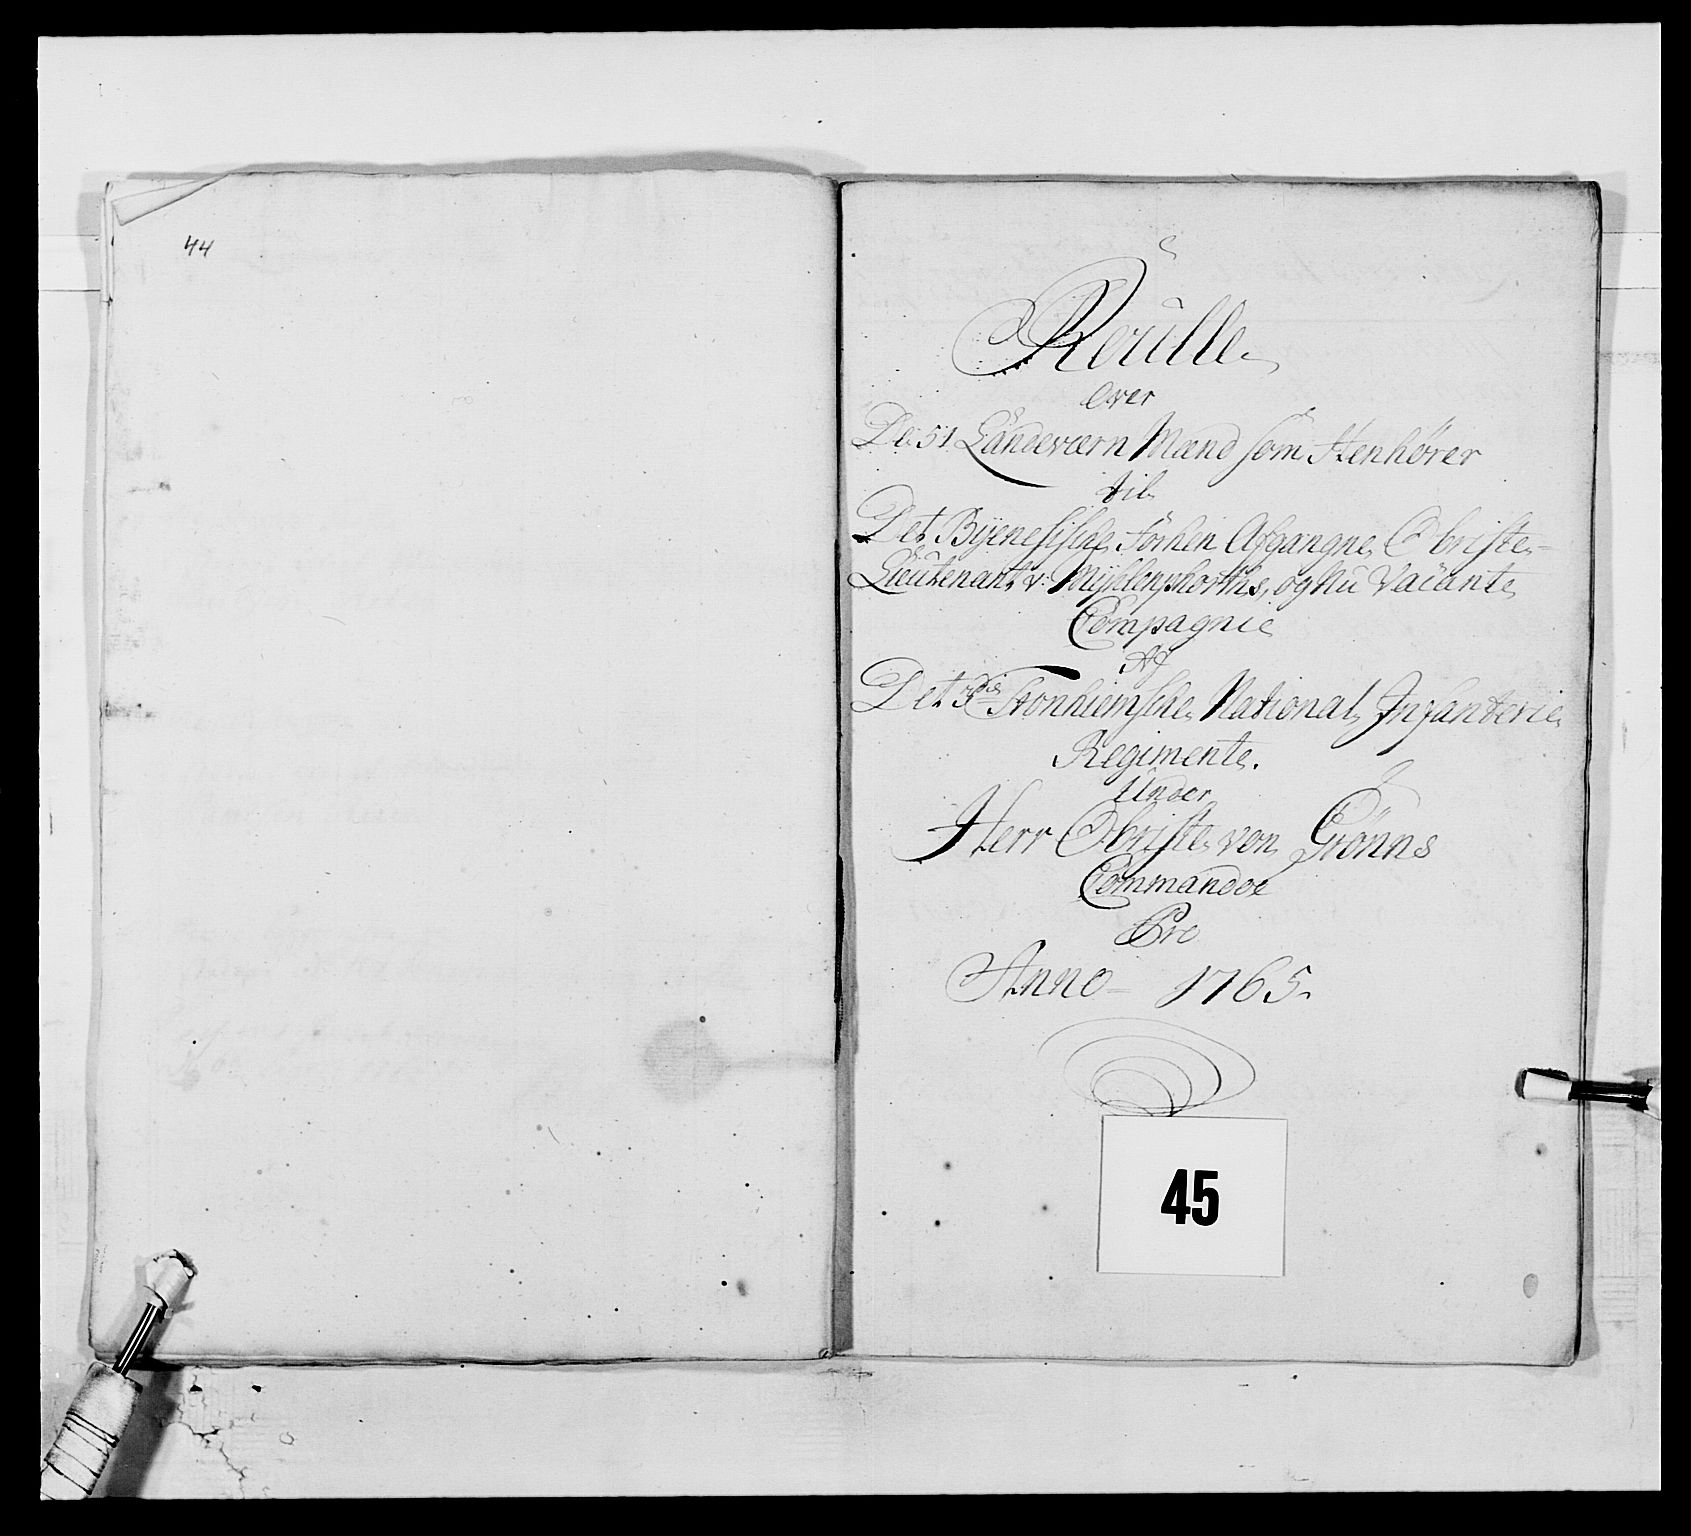 44
Roülle
Over
De 51 Landeværn Mænd som Henhører
til
Det Byenesische forhen Afgangne Obriste-
Lieutenant v: Mühlenphorths, og Nu Vacante
Compagnie
Af
Det 3die Tronhiemsche National Infanterie
Regimente.
Under
Herr Obriste von Grønns
Commandoe
Pro
Anno 1765.
45